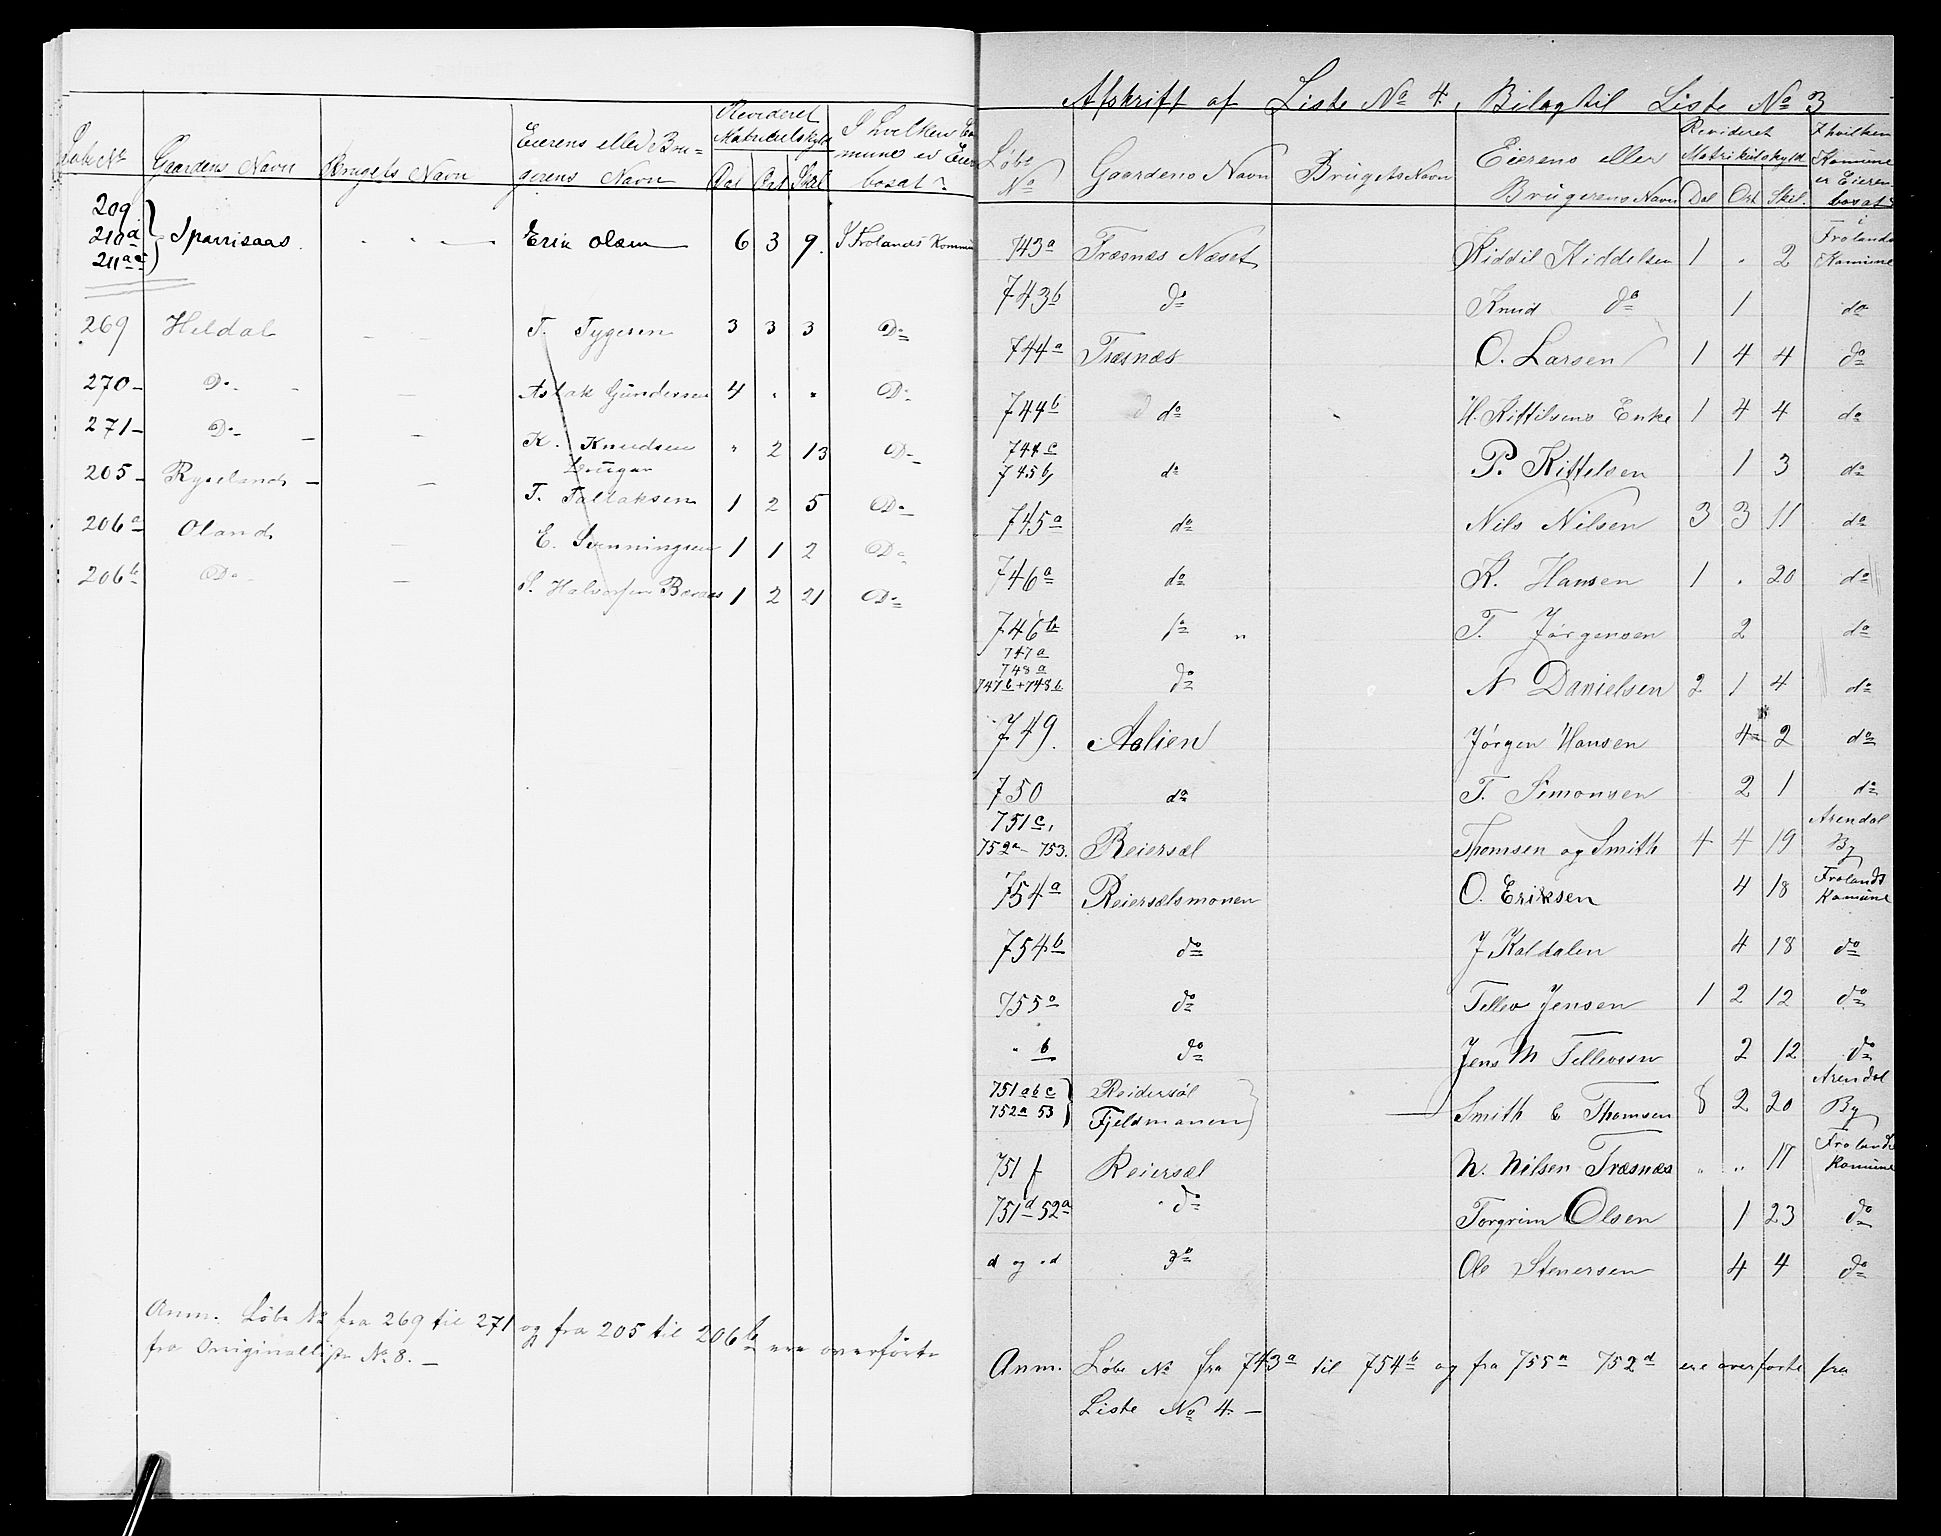 Løbe No Gaardens Navn Brugets Navn Eierens eller Bru-
gerens Navn Revideret
Matrikulskyld
Dal Ort Skil I hvilken Ko
mune er Eier
bosat?
209
210a
211a Sparrisaas - - - Erik Olsen 6 3 9. I Frolands Kommune
269 Heldal - T. Tygesen 3 3 3 Do
270 - Do - - Aslak Gundersen 4 " " Do
271 - Do - - K. Knudsen " 2 13 Do
205 - Ryseland - - T. Tallaksen 1 2 5 Do
206a Oland - E. Svenningsen 1 1 2 Do
206b Do - S. Halvorsen 1 2 21 Do
Anm. Løbe No fra 269 til 271 og fra 205 til 206b ere overførte
fra Originalliste No 8. -
Afskrift af Liste No 4, Bilag til Liste No 3
Løbe
No Gaardens Navn Brugets Navn Eierens eller
Brugerens Navn Revideret
Matrikulskyld
Dal Ort Skil. I hvilken
Komune
er Eieren
bosat?
743a Træsnæs Næset Kiddil Kiddelsen 1 . 2 i
Frolands
Komune
743b do Knud do 1 do
744a Træsnæs O. Larsen 1 4 4 do
744b do H. Kittilsens Enke 1 4 4 do
744c
745b do P. Kittelsen 1 3 do
745a do Nils Nilsen 3 3 11 do
746a do K. Hansen 1 . 20 do
746b do " T. Jørgensen 2 do
747a
748a
747b + 748b do N Danielsen 2 1 4 do
749. Aalien Jørgen Hansen 4 2 do
750 do T. Simonsen 2 1 do
751c,
752a - 753. Reiersæl Thomsen og Smith 4 4 19 Arendal
By
754a Reiersælsmonen O. Eriksen 4 18 Frolands
Komune
754b do J Kaldalen 4 18 do
755a do Tellev Jensen 1 2 12 do
" b do Jens M Tellevsen 2 12 do
751abc
752a 53 Reidersøl
Fjeldmanen Smith & Thomsen 8 2 20 Arendal
By
751 f Reiersæl N. Nilsen Træsnæs " " 11 Frolands
Komune
751d 52a " do Torgrim Olsen 1 23 do
d og d do Ole Stenersen 4 4 do
Anm. Løbe No fra 743a til 754b og fra 755a 752d ere overførte fra
Liste No 4. -